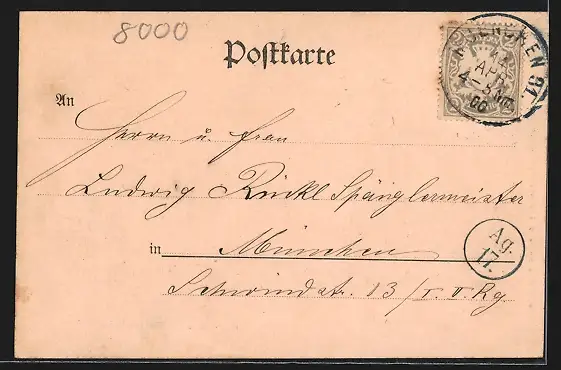 8000
Postkarte
MUENCHEN 31.
APR.
4-5 NM
00
An
Herrn u Frau
Ludwig Rückl Spänglermeister
in München
Schwindstr. 13/r. II Rg
Ag.
17.